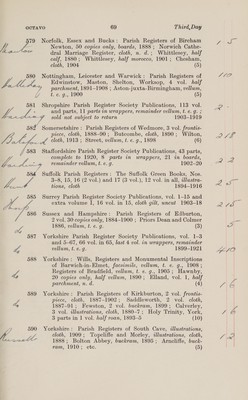 OCTAVO 69 Third Day
579 Norfolk, Essex and Bucks : Parish Registers of Bircham
Newton, 50 copies only, boards, 1888 ; Norwich Cathe-
dral Marriage Register, cloth, n. d. ; Whittlesey, half
calf, 1880 ; Whittlesey, half morocco, 1901 ; Chesham,
cloth, 1904 (5)
580 Nottingham, Leicester and Warwick : Parish Registers of
Edwinstow, Maxton, Shelton, Worksop, 4 vol. half
parchment, 1891-1908 ; Aston-juxta-Birmingham, vellum,
t. e. g., 1900 (5)
581 Shropshire Parish Register Society Publications, 113 vol.
and parts, 11 parts in wrappers, remainder vellum, t. e. g. ;
sold not subject to return 1903-1919
582 Somersetshire : Parish Registers of Wedmore, 3 vol. frontis-
piece, cloth, 1888-90 ; Butcombe, cloth, 1890 ; Wilton,
cloth, 1913 ; Street, vellum, t. e. g., 1898 (6)
583 Staffordshire Parish Register Society Publications, 43 parts
complete to 1920, 8 parts in wrappers, 21 in boards,
remainder in vellum, t. e. g. 1902-20
584 Suffolk Parish Registers : The Suffolk Green Books, Nos.
3-8, 15, 16 (2 vol.) and 17 (3 vol.), 12 vol. in all, illustra-
tions, cloth 1894-1916
585 Surrey Parish Register Society Publications, vol. 1-15 and
extra volume 1, 16 vol. in 15, cloth gilt, uncut 1903-18
586 Sussex and Hampshire : Parish Registers of Edburton,
2 vol. 30 copies only, 1884-1900 ; Priors Dean and Colmer
1886, vellum, t. e. g. (3)
587 Yorkshire Parish Register Society Publications, vol. 1-3
and 5-67, 66 vol. in 65, last 4 vol. in wrappers, remainder
vellum, t. e. g. 1899-1921
588 Yorkshire : Wills, Registers and Monumental Inscriptions
of Barwick-in-Elmet, facsimile, vellum, t. e. g., 1908 ;
Registers of Bradfield, vellum, t. e. g., 1905 ; Hawnby,
20 copies only, half vellum, 1890 ; Elland, vol. 1, half
parchment, n. d. (4)
589 Yorkshire : Parish Registers of Kirkburton, 2 vol. frontis-
piece, cloth, 1887-1902 ; Saddleworth, 2 vol. cloth,
1887-91 ; Fewston, 2 vol. buckram, 1899 ; Calverley,
3 vol. illustrations, cloth, 1880-7 ; Holy Trinity, York,
5 parts in 1 vol. half roan, 1893-5 (10)
590 Yorkshire : Parish Registers of South Cave, illustrations,
cloth, 1909 ; Topcliffe and Morley, illustrations, cloth,
1888 ; Bolton Abbey, buckram, 1895 ; Arncliffe, buck-
ram, 1910 ; etc. (5)